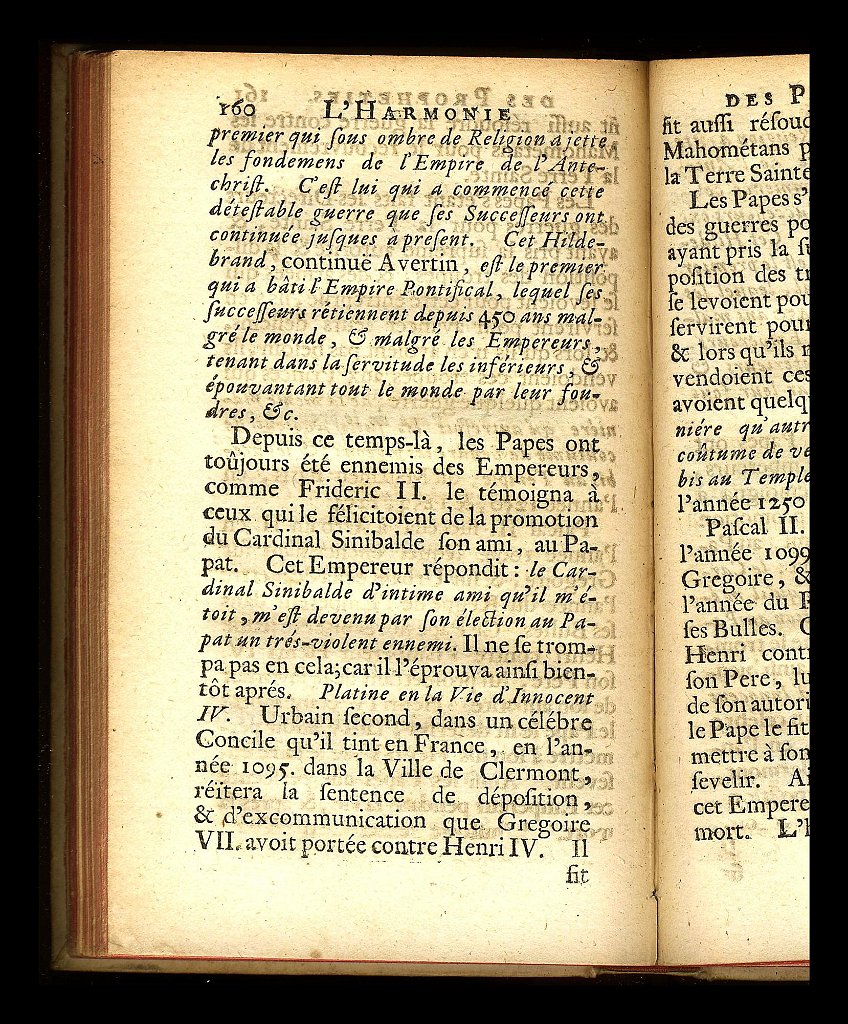 160 L'HARMONIE
premier qui ſous ombre de Religion a jette
les fondemens de l'Empire de l'Ante-
chriſt. C'eſt lui qui a commencé cette
déteſtable guerre que ſes Succeſſeurs ont
continuée juſques a preſent. Cet Hilde-
brand, continuë Avertin, eſt le premier
qui a bâti l'Empire Pontifical, lequel ſes
ſucceſſeurs rétiennent depuis 450 ans mal-
gré le monde, & malgré les Empereurs,
tenant dans la ſervitude les inférieurs, &
épouvantant tout le monde par leur fou-
dres, &c.
Depuis ce temps-là, les Papes ont
toûjours été ennemis des Empereurs,
comme Frideric II. le témoigna à
ceux qui le félicitoient de la promotion
du Cardinal Sinibalde ſon ami, au Pa-
pat. Cet Empereur répondit: le Car-
dinal Sinibalde d'intime ami qu'il m'é-
toit, m'eſt devenu par ſon élection au Pa-
pat un trés-violent ennemi. Il ne ſe trom-
pa pas en cela; car il l'éprouva ainſi bien-
tôt aprés. Platine en la Vie d'Innocent
IV. Urbain ſecond, dans un célébre
Concile qu'il tint en France, en l'an-
née 1095. dans la Ville de Clermont,
réitera la ſentence de dépoſition,
& d'excommunication que Gregoire
VII. avoit portée contre Henri IV. Il
fit
DES P
fit auſſi réſoud
Mahométans p
la Terre Sainte
Les Papes s'
des guerres po
ayant pris la ſu
poſition des tr
ſe levoient pou
ſervirent pour
& lors qu'ils
vendoient ces
avoient quelq
niére qu'autr
coûtume de ve
bis au Temple
l'année 1250
Paſcal II.
l'année 1099
Gregoire, &
l'année du
ſes Bulles.
Henri contr
ſon Pere, lu
de ſon autori
le Pape le fit
mettre à ſon
ſevelir. Ai
cet Empere
mort. L'